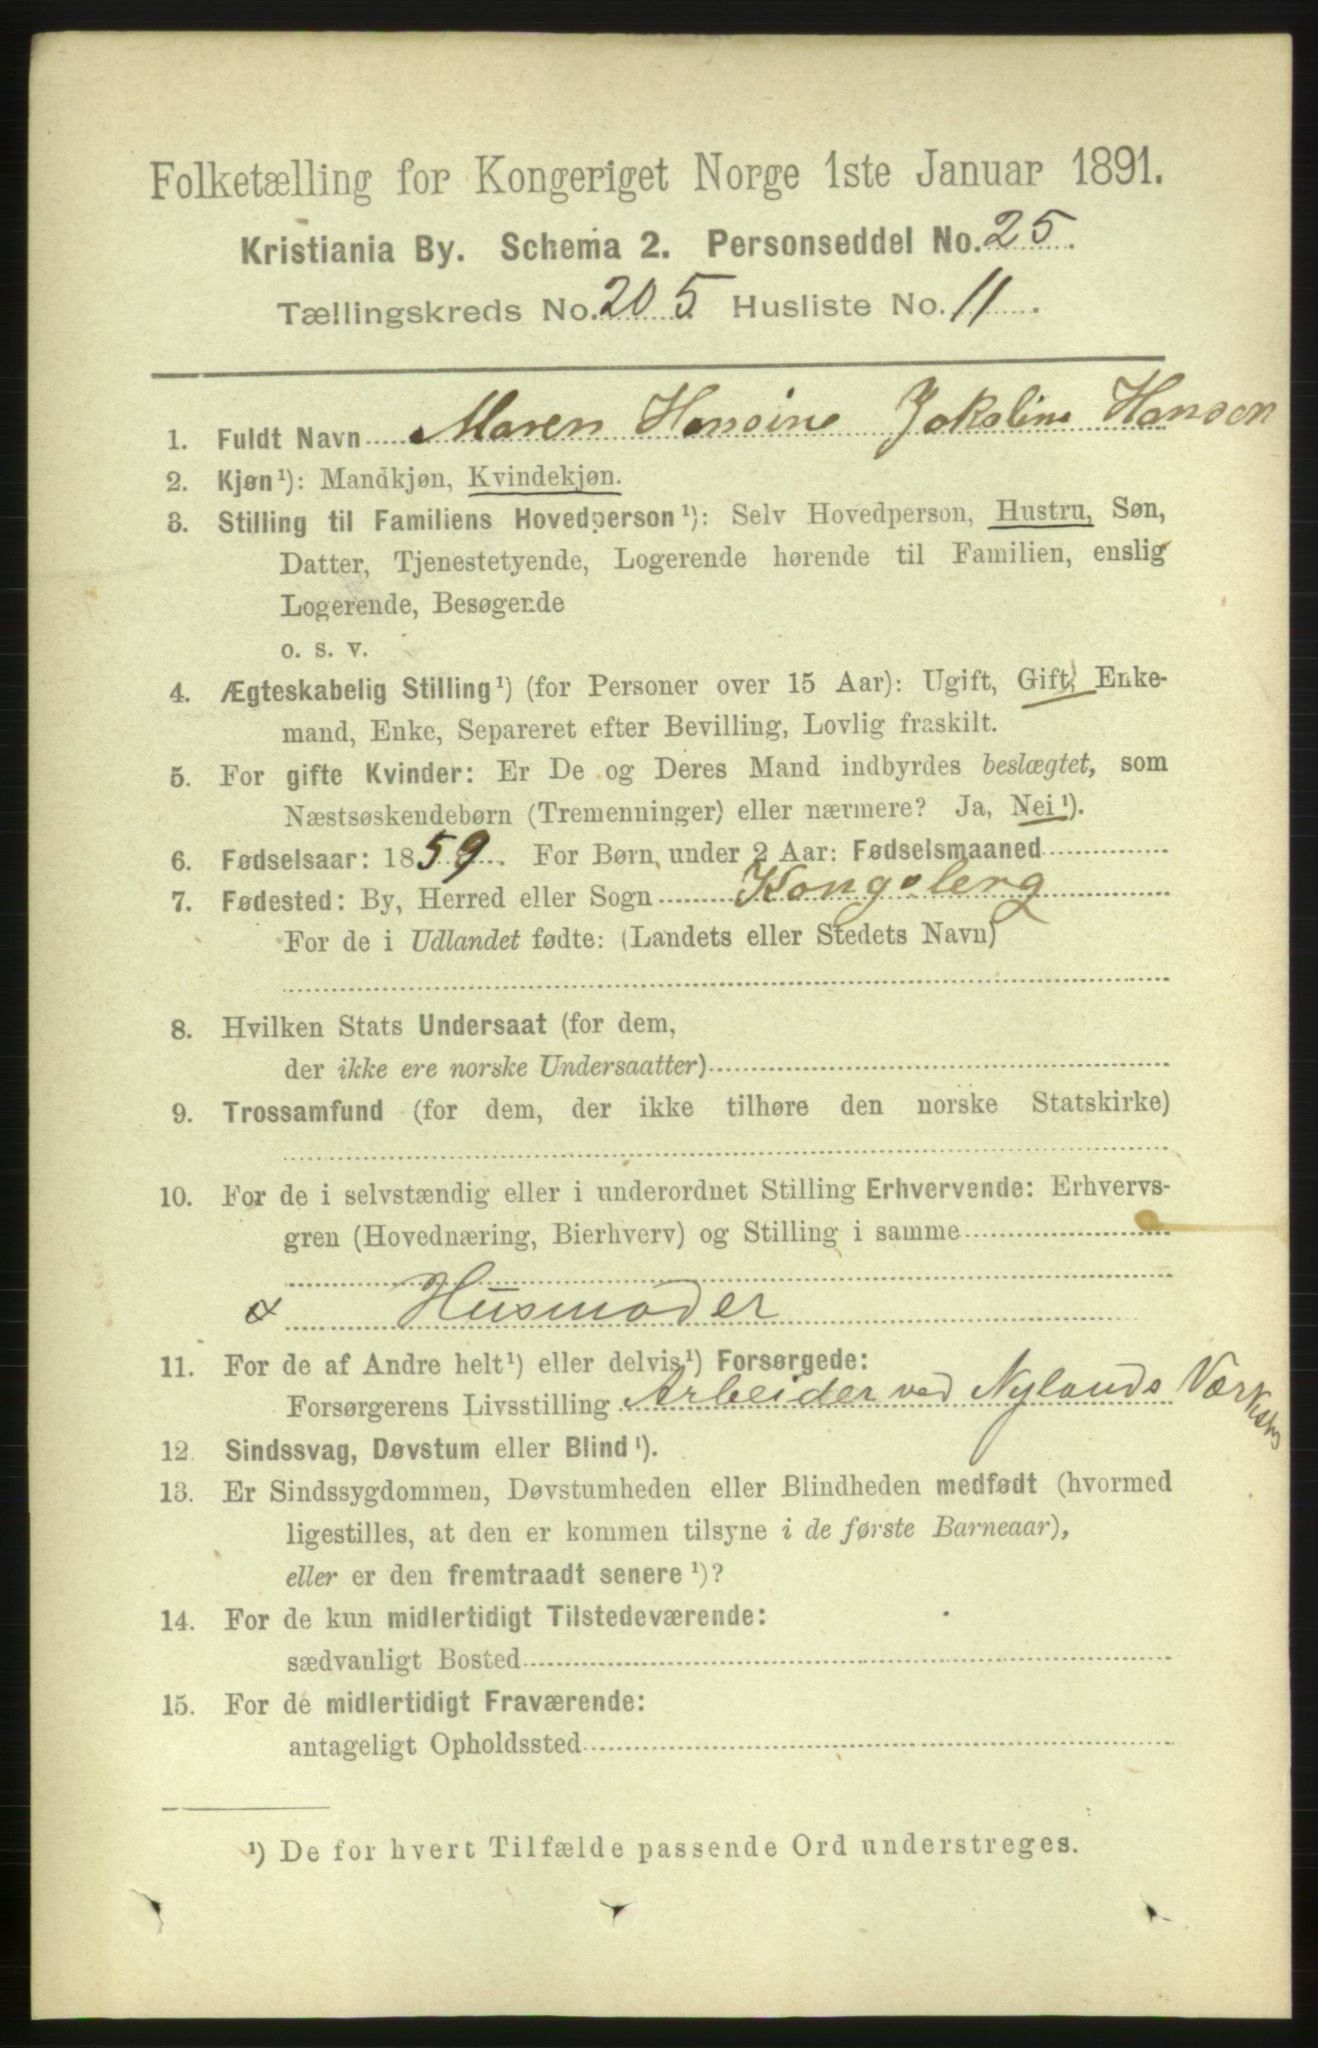 Folketælling for Kongeriget Norge 1ste Januar 1891.
Kristiania By. Schema 2. Personseddel No. 25.
Tællingskreds No. 205 Husliste No. 11.
1. Fuldt Navn Maren Hansine Jakobine Hansen
2. Kjøn¹): Mandkjøn, Kvindekjøn.
3. Stilling til Familiens Hovedperson¹): Selv Hovedperson, Hustru, Søn,
Datter, Tjenestetyende, Logerende hørende til Familien, enslig
Logerende, Besøgende
o. s. v.
4. Ægteskabelig Stilling¹) (for Personer over 15 Aar): Ugift, Gift, Enke-
mand, Enke, Separeret efter Bevilling, Lovlig fraskilt.
5. For gifte Kvinder: Er De og Deres Mand indbyrdes beslægtet, som
Næstsøskendebørn (Tremenninger) eller nærmere? Ja, Nei¹).
6. Fødselsaar: 1859. For Børn under 2 Aar: Fødselsmaaned
7. Fødested: By, Herred eller Sogn Kongsberg
For de i Udlandet fødte: (Landets eller Stedets Navn)
8. Hvilken Stats Undersaat (for dem,
der ikke ere norske Undersaatter)
9. Trossamfund (for dem, der ikke tilhøre den norske Statskirke)
10. For de i selvstændig eller i underordnet Stilling Erhvervende: Erhvervs-
gren (Hovednæring, Bierhverv) og Stilling i samme
Husmoder
11. For de af Andre helt¹) eller delvis¹) Forsørgede:
Forsørgerens Livsstilling Arbeider ved Nylands Værksted
12. Sindssvag, Døvstum eller Blind¹).
13. Er Sindssygdommen, Døvstumheden eller Blindheden medfødt (hvormed
ligestilles, at den er kommen tilsyne i de første Barneaar),
eller er den fremtraadt senere¹)?
14. For de kun midlertidigt Tilstedeværende:
sædvanligt Bosted
15. For de midlertidigt Fraværende:
antageligt Opholdssted
¹) De for hvert Tilfælde passende Ord understreges.